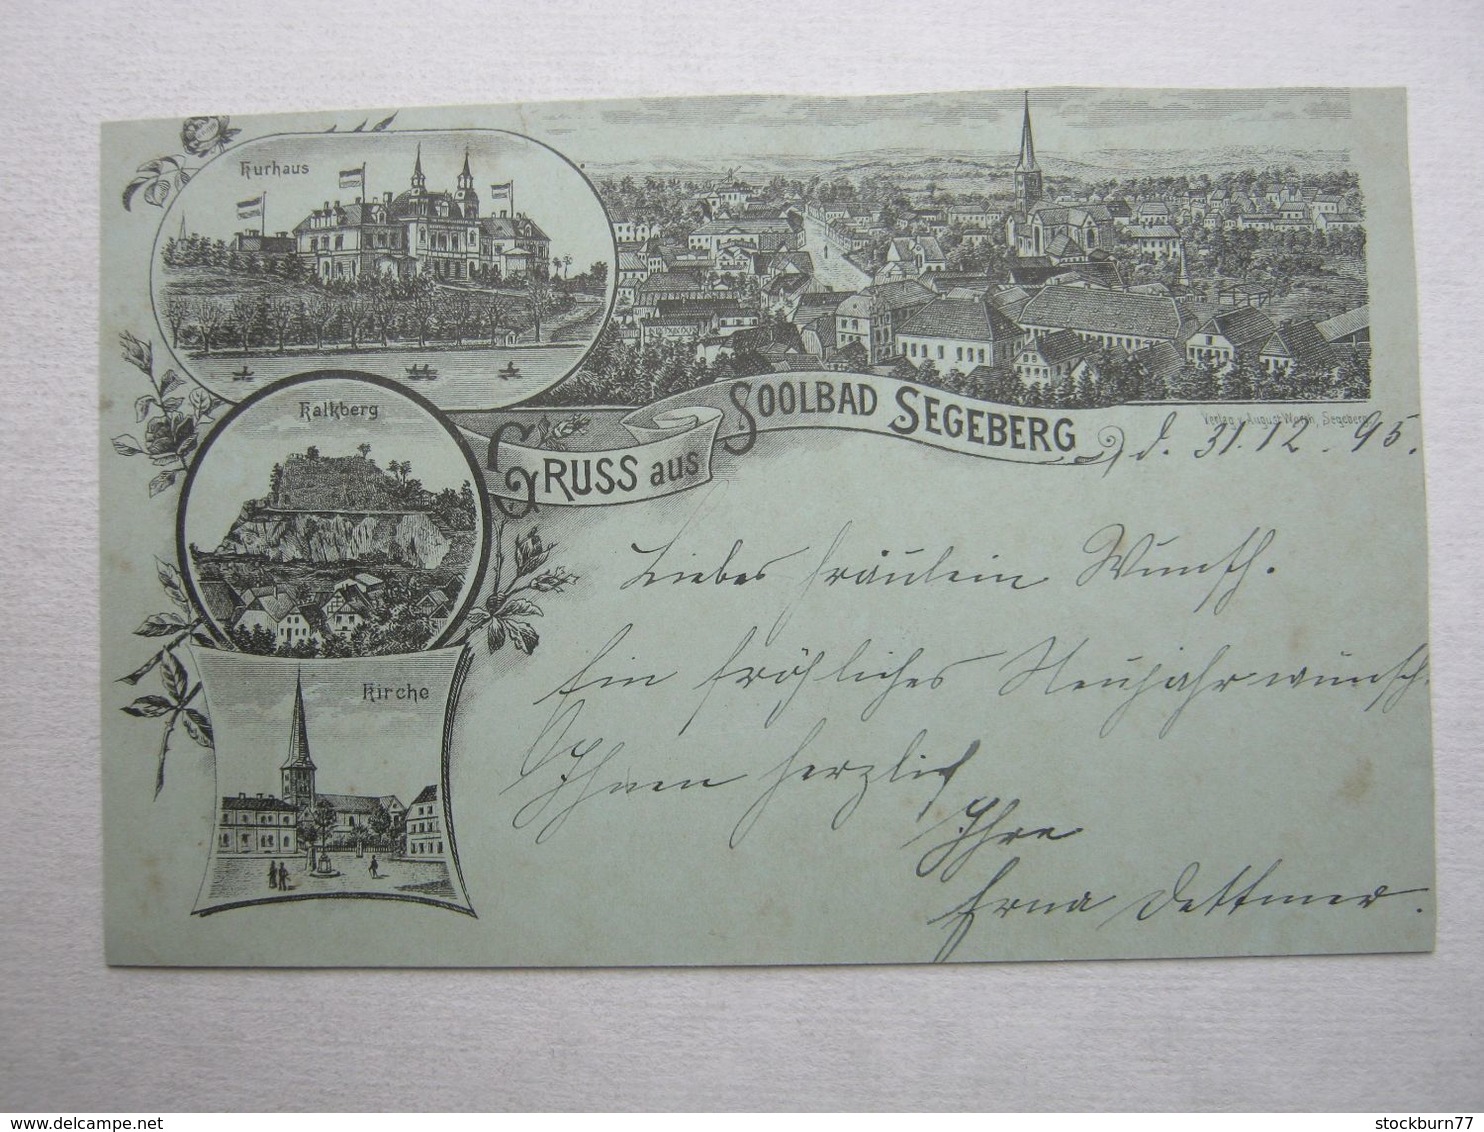 Kurhaus
Kalkberg
Kirche
GRUSS aus SOOLBAD SEGEBERG
Verlag v. August Segeberg.
d. 31.12.95.
Liebes Fräulein Wunsch.
Ein fröhliches Neujahr wünsch
Ihnen herzlich
Ihre
Erna Dettmer.
stockburn77